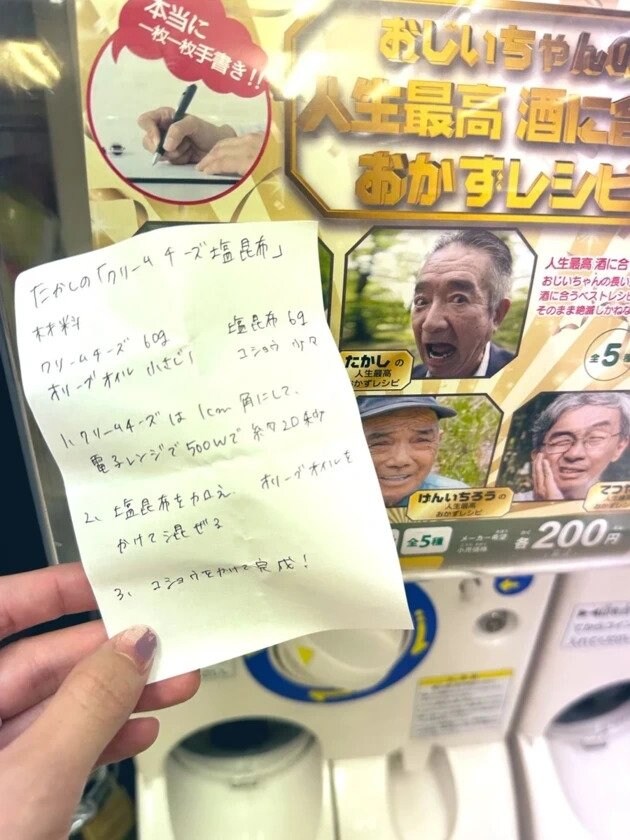 本当に
一枚一枚手書き!!
おじいちゃんの
人生最高 酒に合
おかずレシピ
たかしの「クリームチーズ塩昆布」
材料
クリームチーズ 60g 塩昆布 6g
オリーブオイル 小さじ1 コショウ 少々
1、クリームチーズは1cm角にして、
電子レンジで500Wで約20秒
2、塩昆布を加え、オリーブオイルを
かけて混ぜる
3、コショウをかけて完成!
人生最高 酒に合
おじいちゃんの長い
酒に合うベストレシ
そのまま絶滅しかね
全5
たかしの
人生最高
おかずレシピ
けんいちろうの
人生最高
おかずレシピ
てつ
人生最高
おかずレシピ
全5種
メーカー希望
小売価格
各200円